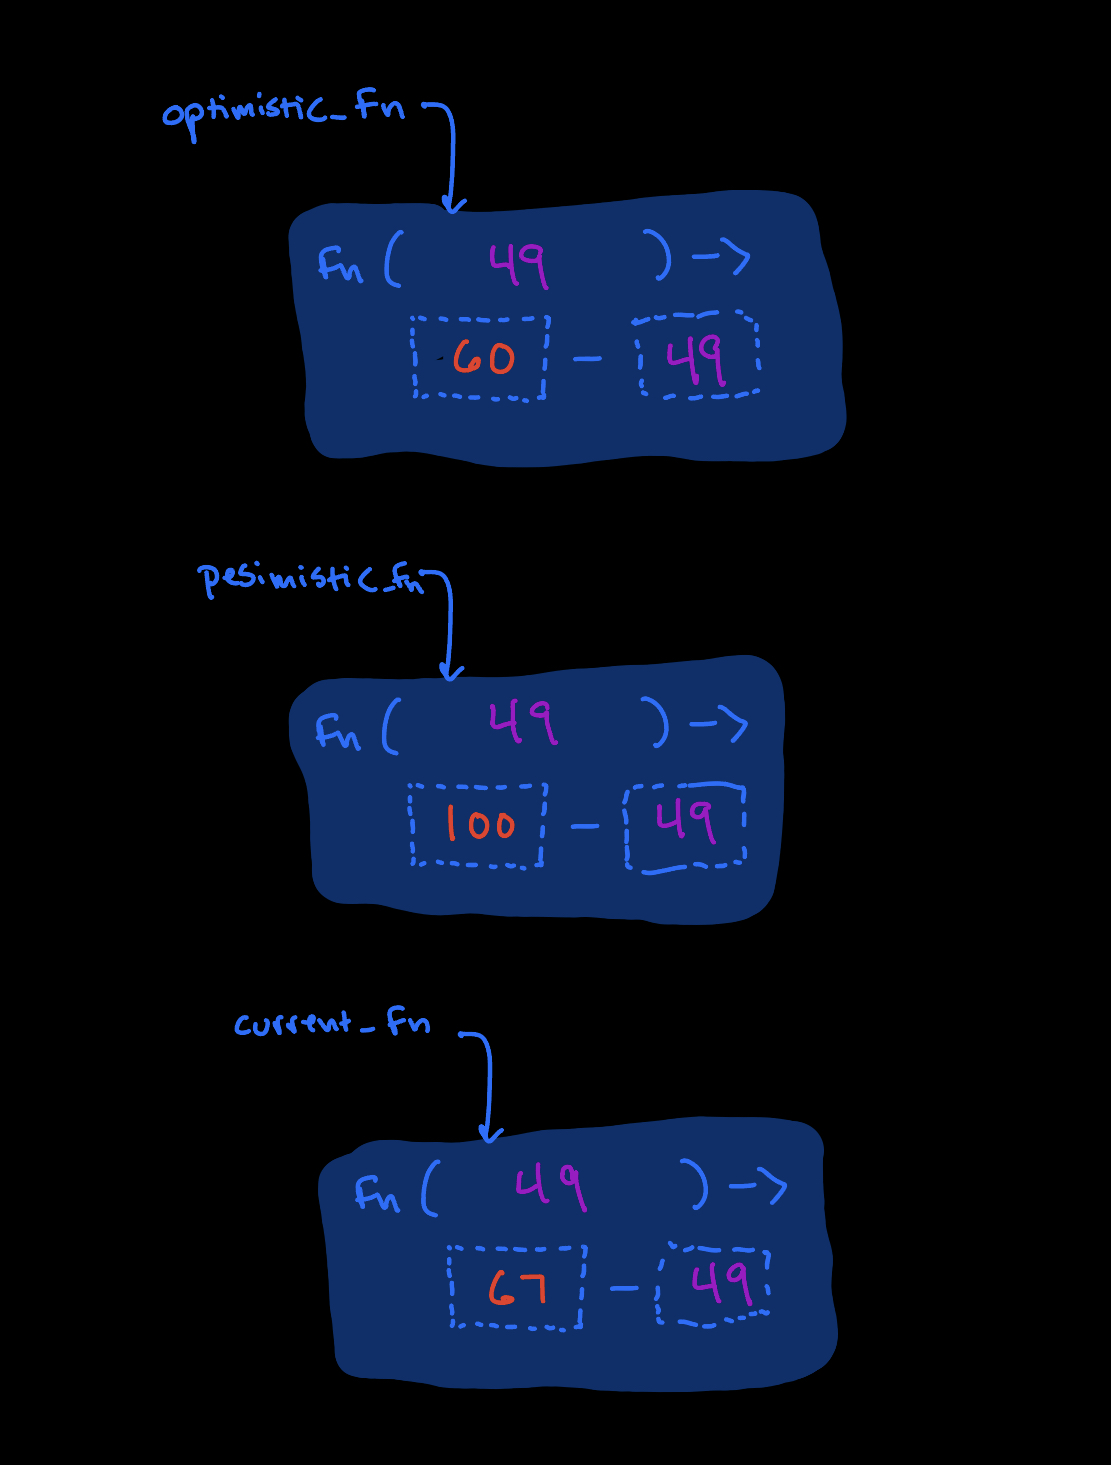 optimistic_fn
fn ( 49 ) →
60 - 49
pesimistic_fn
fn ( 49 ) →
100 - 49
current_fn
fn ( 49 ) →
67 - 49